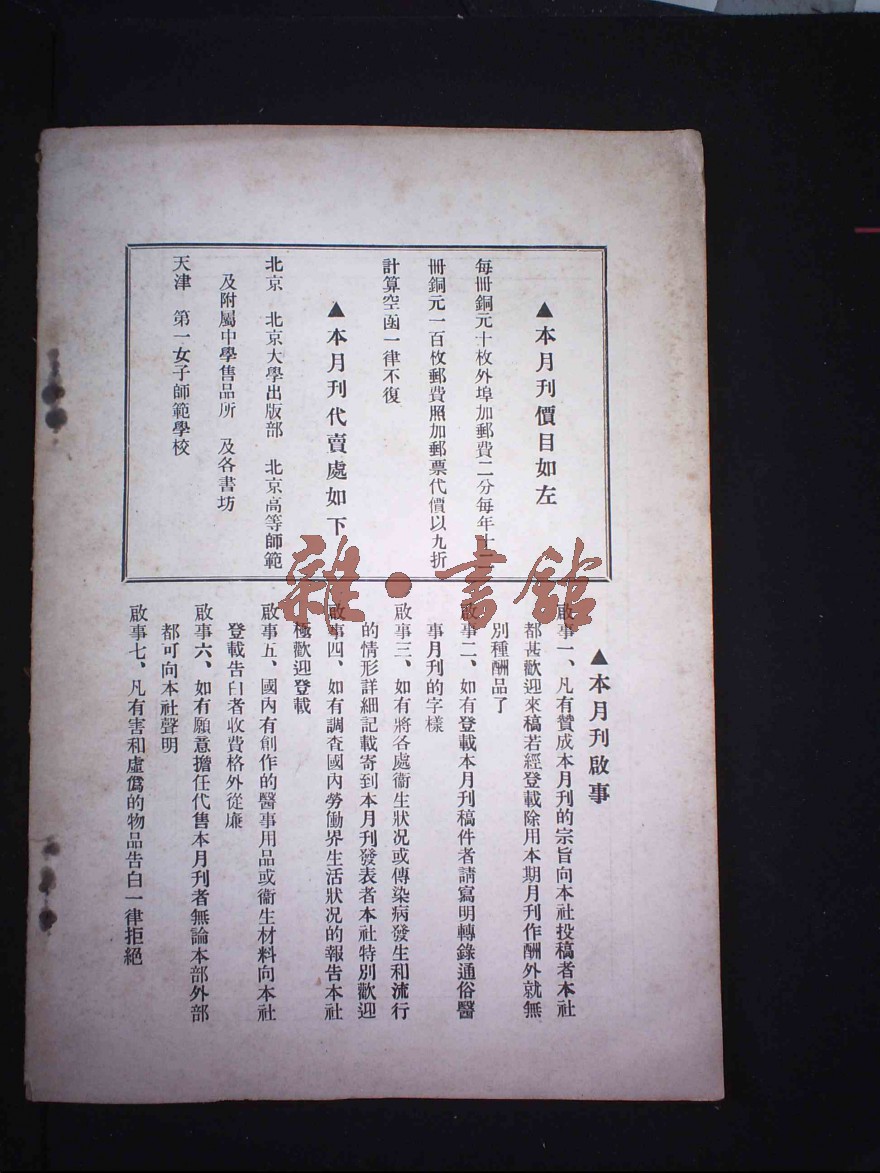 ▲本月刊價目如左
每冊銅元十枚外埠加郵費二分每年十二
冊銅元一百枚郵費照加郵票代價以九折
計算空函一律不復
▲本月刊代賣處如下
北京　北京大學出版部　北京高等師範
及附屬中學售品所　及各書坊
天津　第一女子師範學校
▲本月刊啟事
啟事一、凡有贊成本月刊的宗旨向本社投稿者本社
都甚歡迎來稿若經登載除用本期月刊作酬外就無
別種酬品了
啟事二、如有登載本月刊稿件者請寫明轉錄通俗醫
事月刊的字樣
啟事三、如有將各處衞生狀况或傳染病發生和流行
的情形詳細記載寄到本月刊發表者本社特別歡迎
啟事四、如有調查國內勞働界生活狀况的報告本社
極歡迎登載
啟事五、國內有創作的醫事用品或衞生材料向本社
登載告白者收費格外從廉
啟事六、如有願意擔任代售本月刊者無論本部外部
都可向本社聲明
啟事七、凡有害和虛僞的物品告白一律拒絕
雜·書館